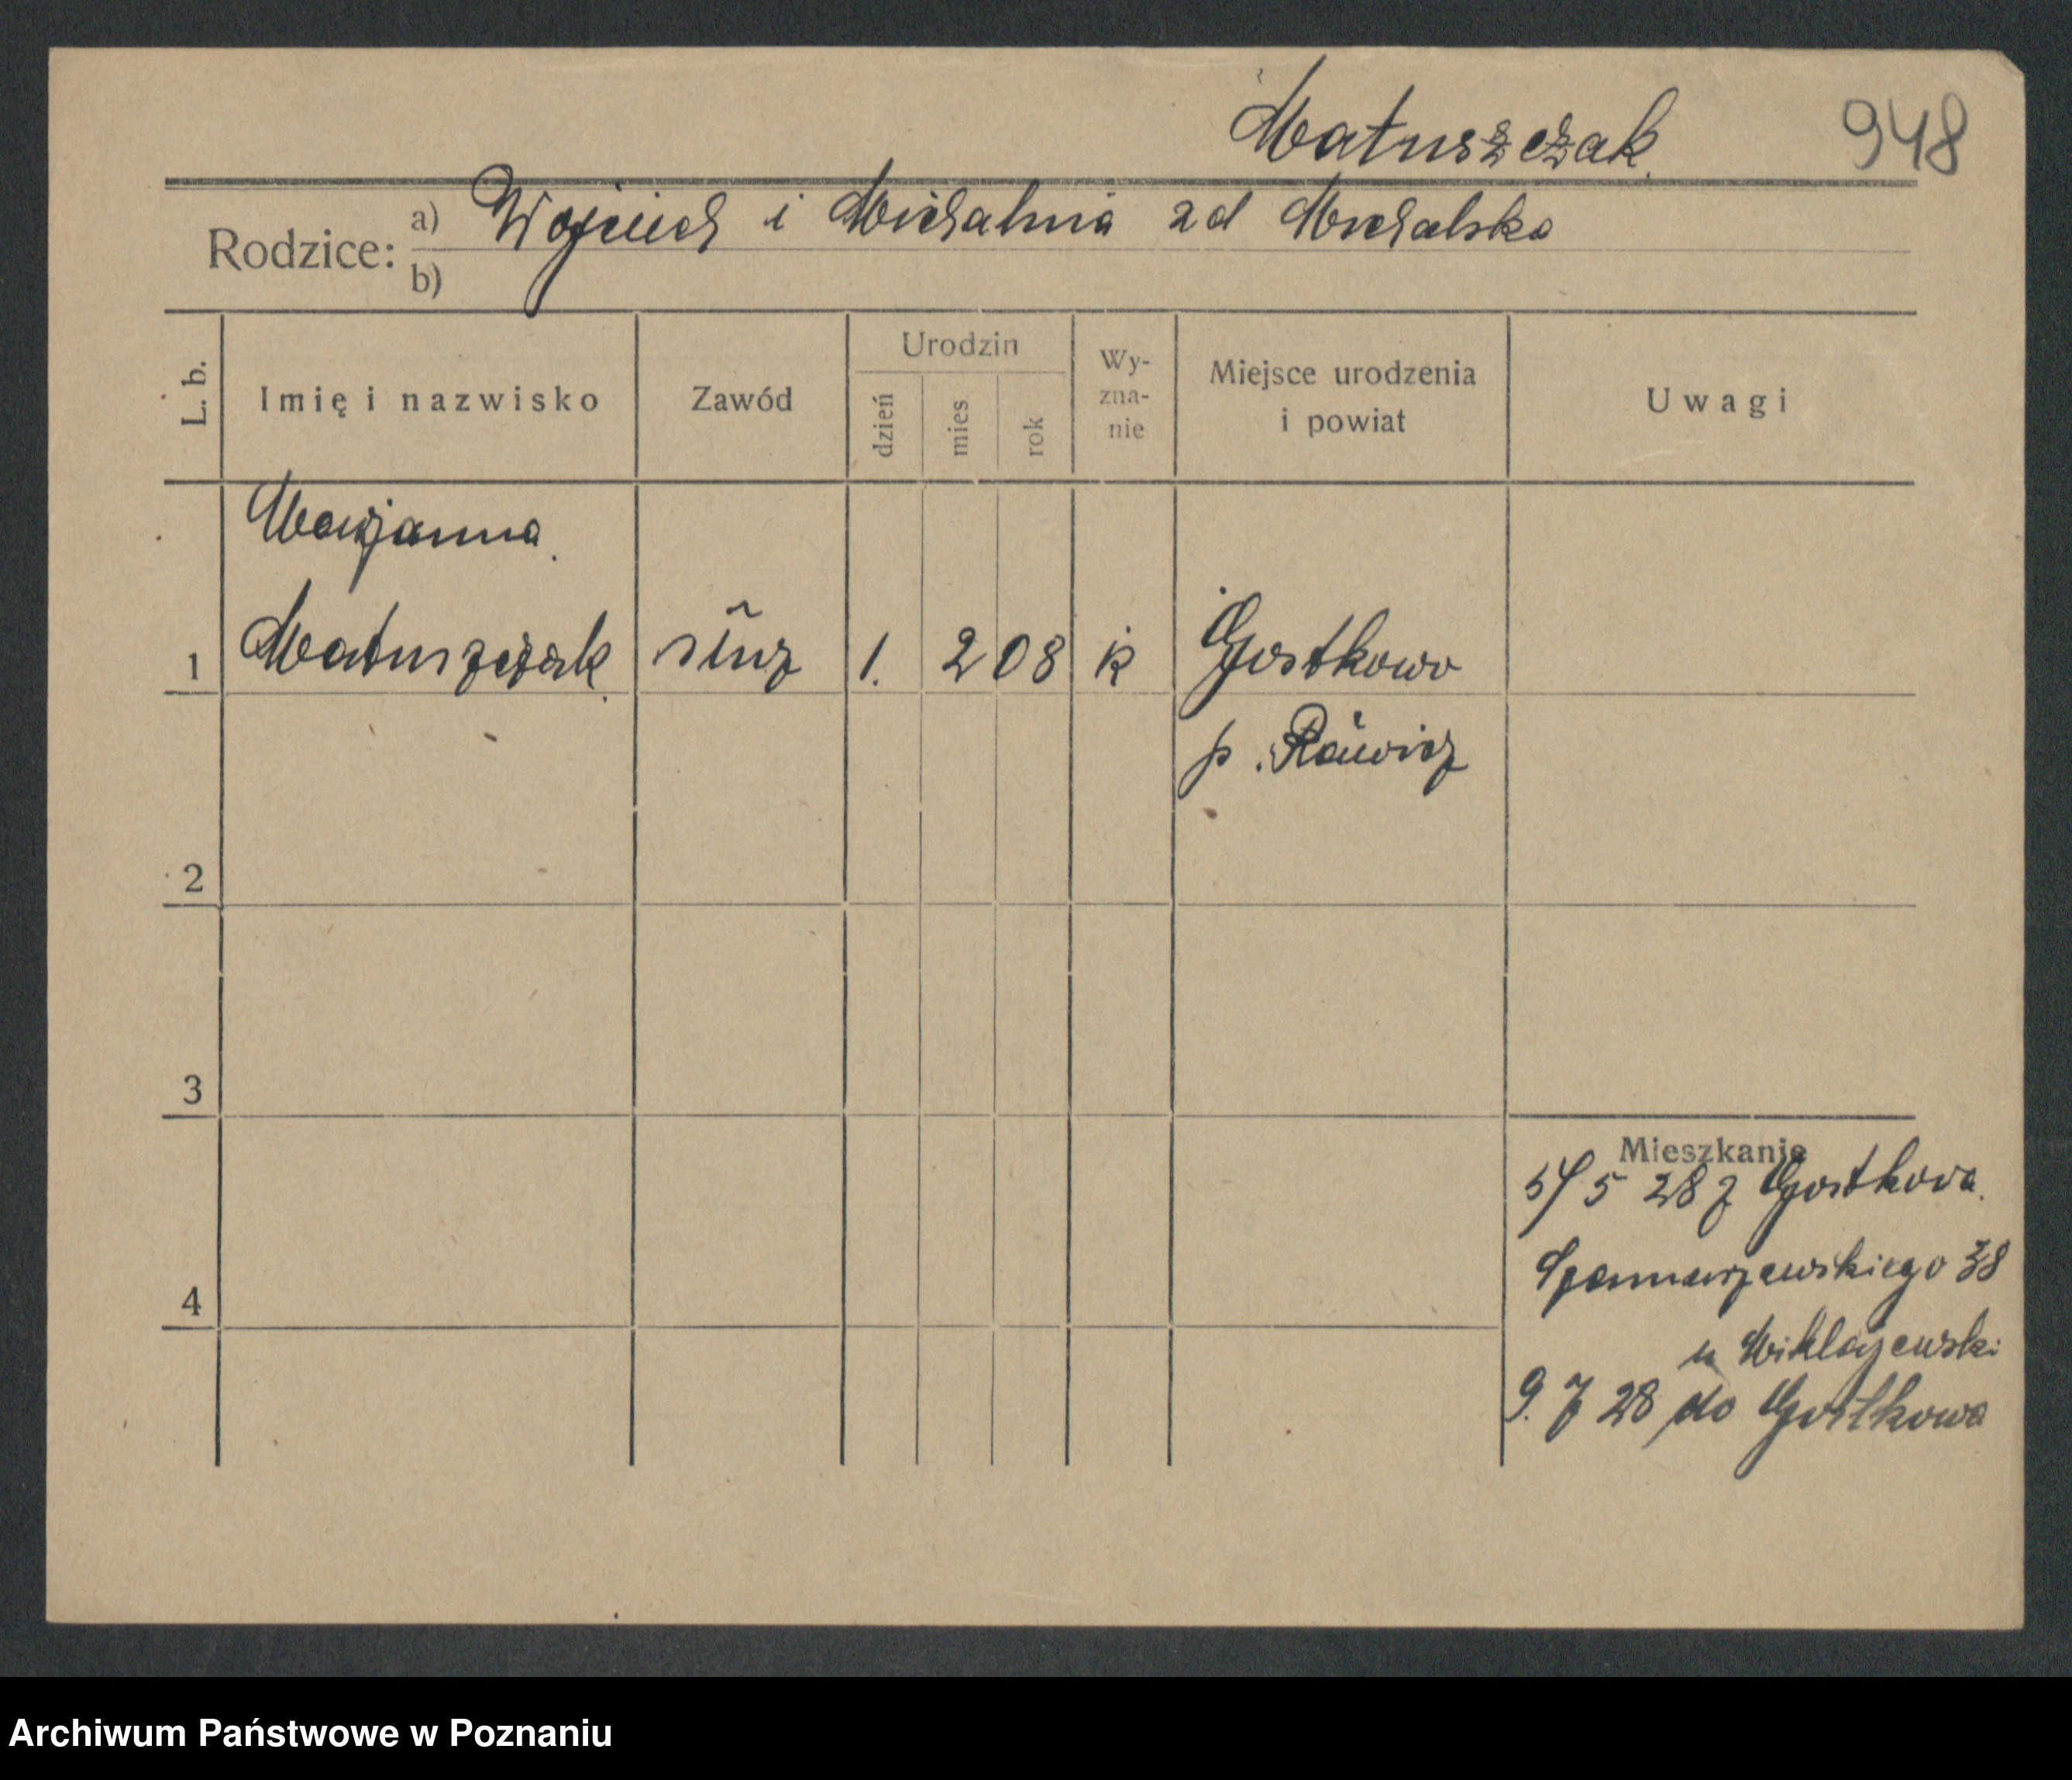 Matuszczak
948
Rodzice: a) Wojciech i Michalina zd Michalska
b)
L. b.
Imię i nazwisko
Zawód
Urodzin
dzień
mies
rok
Wy-
zna-
nie
Miejsce urodzenia
i powiat
Uwagi
Marjanna
1 Matuszczak służ 1. 2 08 k Gostkowo
p. Rawicz
2
3
4
Mieszkanie
5/5 28 z Gostkowa
Szamarzewskiego 38
u Mikłajewski
9. 7 28 do Gostkowa
Archiwum Państwowe w Poznaniu